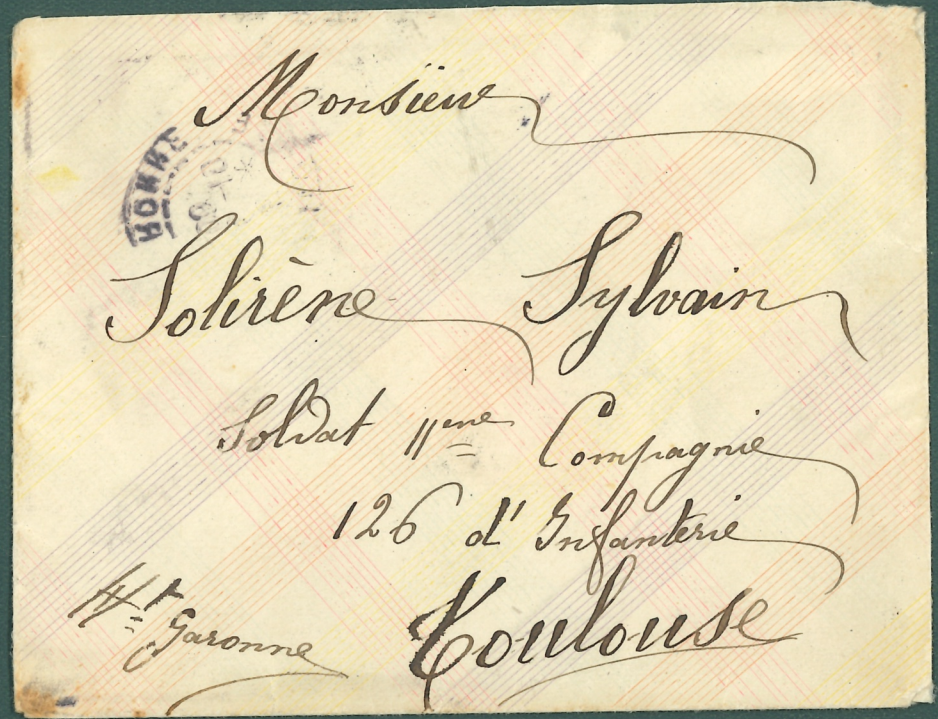 Monsieur
Solirène Sylvain
Soldat 11eme Compagnie
126 d'Infanterie
Hte Garonne
Toulouse